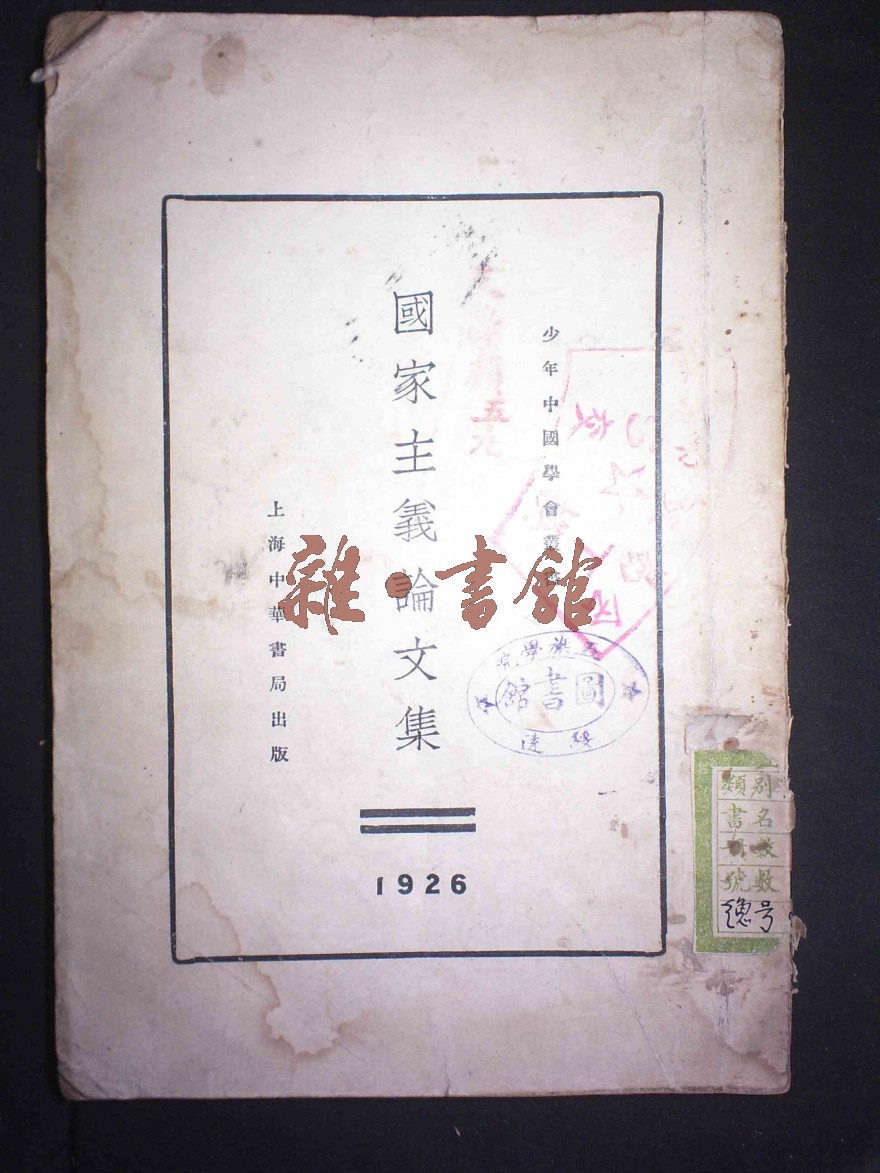 少年中國學會叢書
國家主義論文集
上海中華書局出版
1926
雜·書館
圖書館
類別
書名
號數
總号